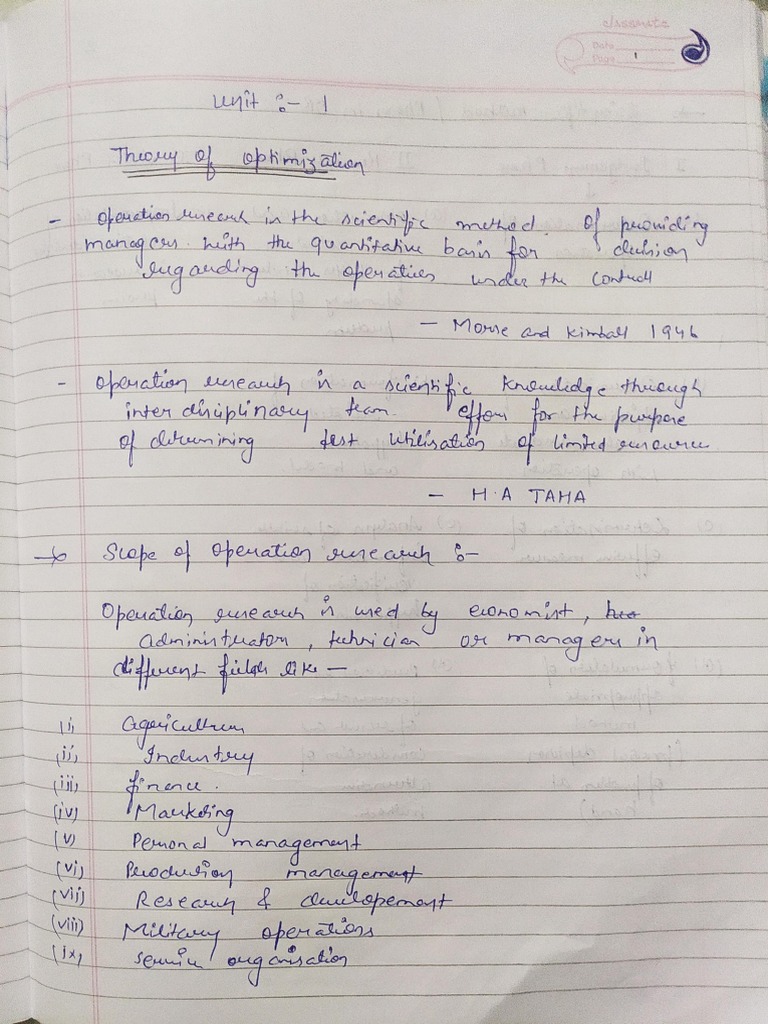 classmate
Date
Page 1
Unit :- 1
Theory of optimization
- Operation research in the scientific method of providing
managers with the quantitative basis for decision
regarding the operations under the controll
- Morse and Kimball 1946
- Operation research is a scientific knowledge through
inter disciplinary team effors for the purpose
of determining fest utilisation of limited resource
- H.A TAHA
→ Scope of operation research :-
Operation research is used by economist,
administrator, technician or managers in
different fields like -
(i) Agriculture
(ii) Industry
(iii) finance.
(iv) Marketing
(v) Personal management
(vi) Production management
(vii) Research & developement
(viii) Military operations
(ix) service organisation